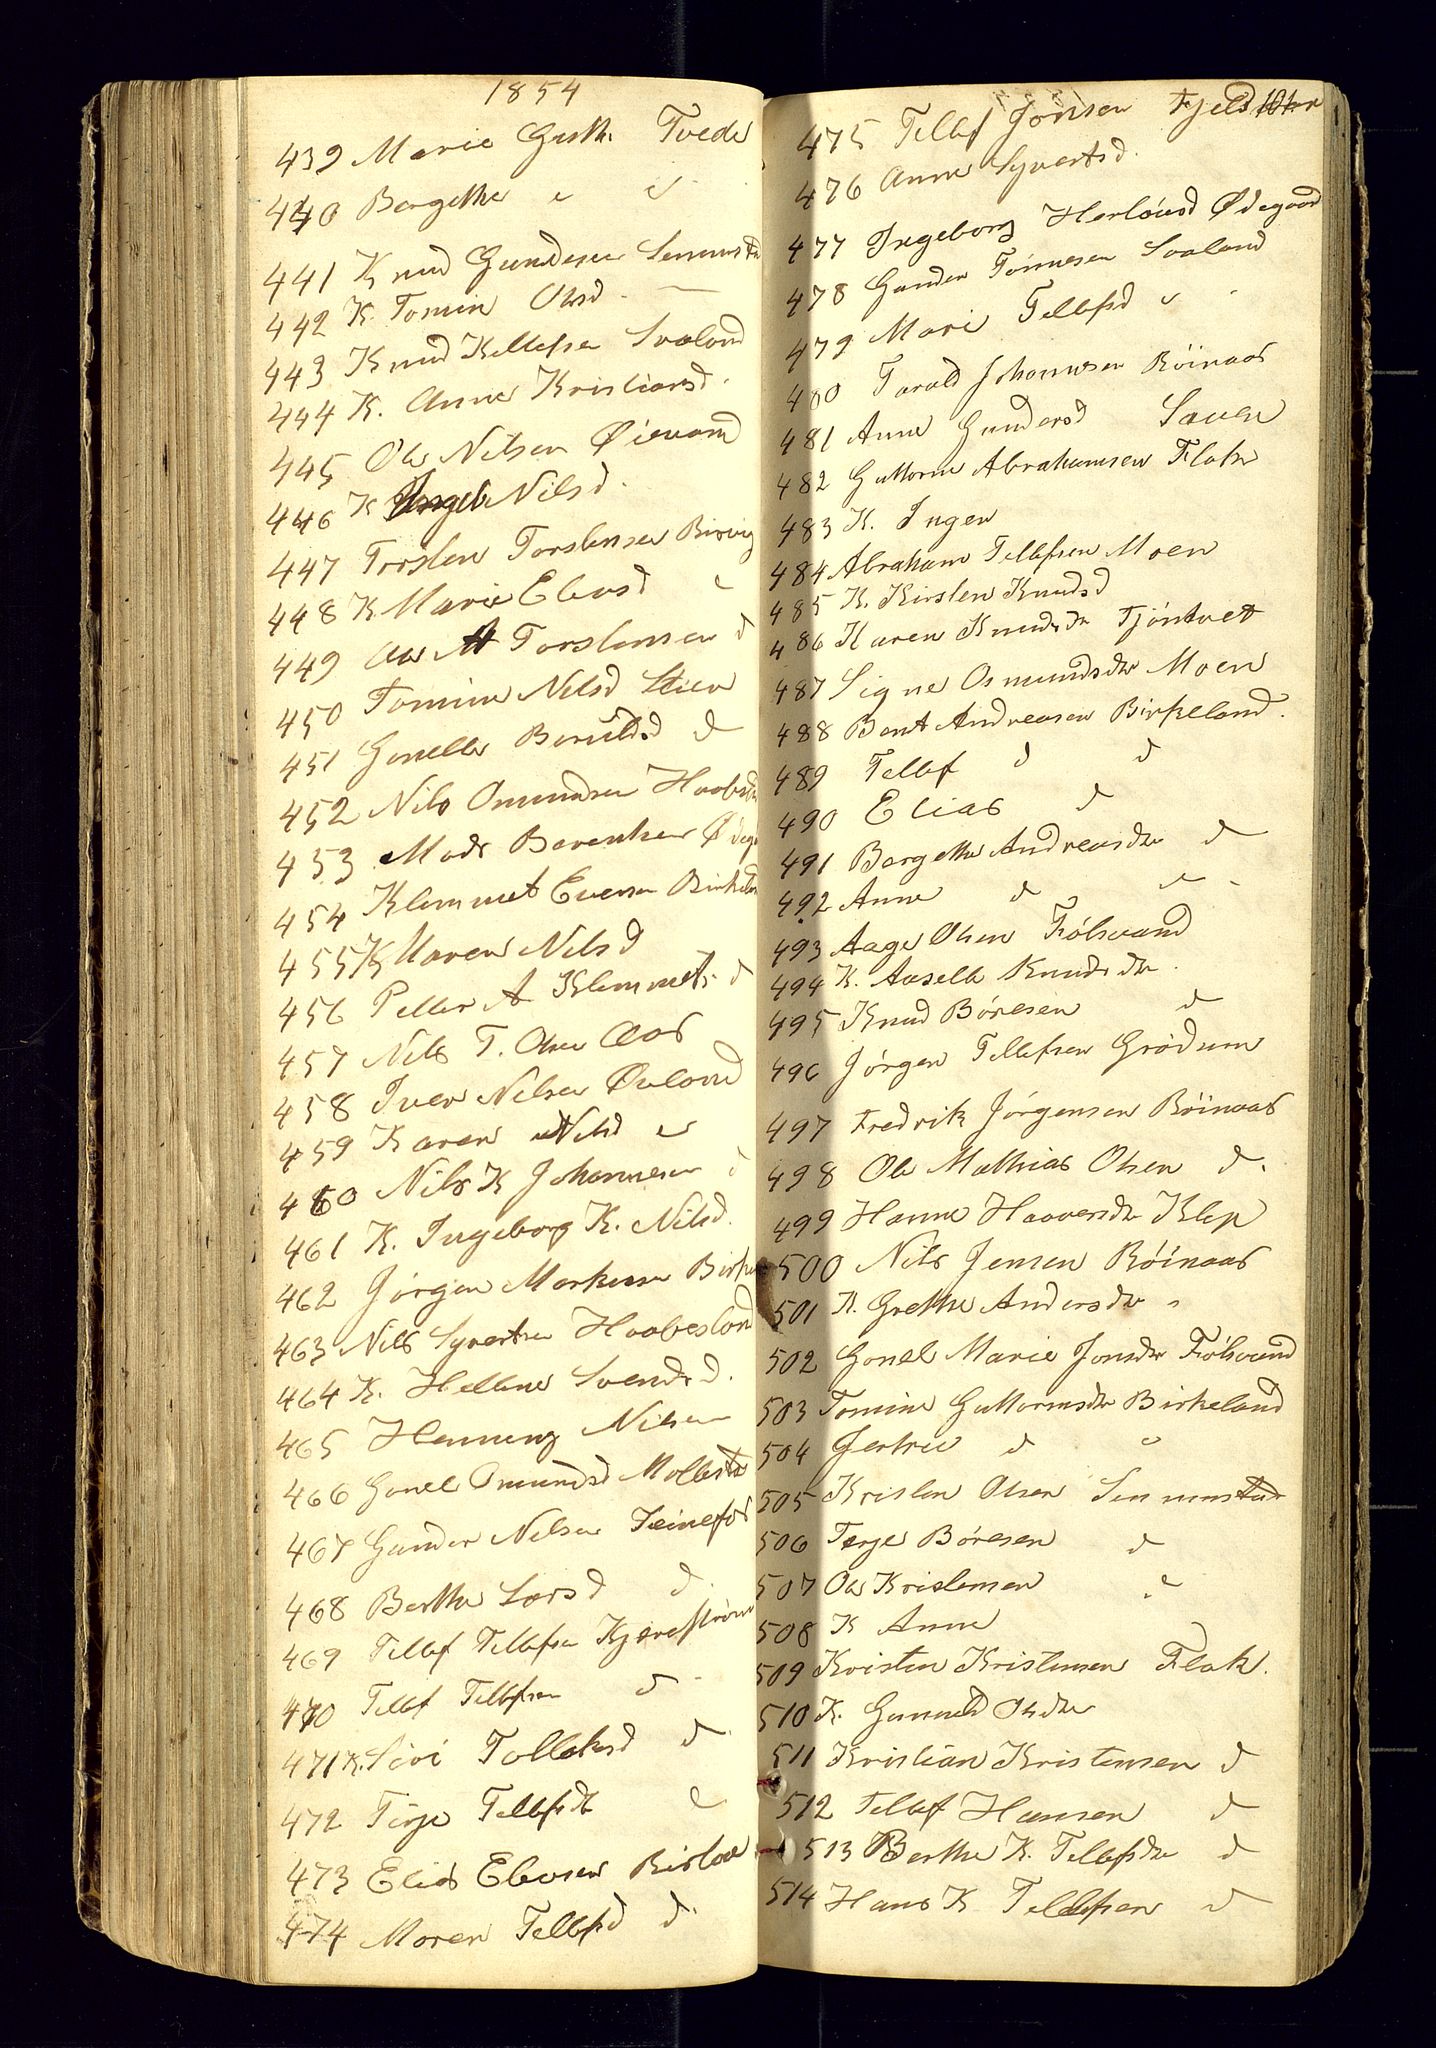 1854
439 Marie Guth. Tvede
440 Bergethe " "
441 Knud Gundersen
442 K. Tomin Olsd
443 Knud Kittelsen Svaland
444 K. Anne Kristiansd.
445 Ole Nilsen Øievand
446 K Nilsd.
447 Torsten Torstensen
448 K Marie Elevsd "
449 Torstensen d
450 Tomine Nilsd
451 Gonelle d
452 Nils Omundsen
453 Mads Berentsen
454 Klemmet Evensen
455 K Maren Nilsd
456 Petter A Klemmets. d
457 Nils T. Olsen Aas
458 Iver Nilsen Øvland
459 Karen Nilsd "
460 Nils K Johannesen d
461 K. Ingeborg K. Nilsd.
462 Jørgen Markusen
463 Nils Syvertsen Haabesland
464 K. Hellene Svendsd.
465 Henning Nilsen
466 Gonel Omundsd
467 Gunder Nilsen
468 Berthe Larsd d.
469 Tellef Tellefsen
470 Tellef Tellefsen d
471 K. Sivi Tolleksd d
472 Terje Tellefsd "
473 Elias Elevsen
474 Maren Tellefsd d
475 Tellef Jonsen
476 Anne Syvertsd.
477 Ingeborg Herlovsd Ødegaard
478 Gunder Tønnesen Svaland
479 Mari Tellefsd "
480 Tarald Johannesen Röinaas
481 Anne Gundersd Sauen
482 Guttorm Abrahamsen Flak
483 K. Inger
484 Abraham Tellefsen Moen
485 K. Kirsten Knudsd
486 Karen Knudsdr Tjöntvet
487 Signe Osmundsdr Moen
488 Bent Andreasen Birkeland.
489 Tellef d d
490 Elias d
491 Bergethe Andreasdr d
492 Anne d "
493 Aage Olsen Følsvand
494 K. Aaselle Knudsdr.
495 Knud Børesen d
496 Jörgen Tellefsen Grödum
497 Fredrik Jørgensen Röinaas
498 Ole Mathias Olsen d.
499 Hanne Haaversdr Klep
500 Nils Jensen Röinaas
501 K. Grethe Andersdr "
502 Gonel Marie Jonsdr Følsvand
503 Tomine Guttormsdr Birkeland
504 Jertrue d "
505 Kristen Olsen Senumstad
506 Terje Böresen d
507 Ole Kristensen "
508 K Anne
509 Kristen Kristensen Flak.
510 K. Gunuld Olsdr
511 Kristian Kristensen d
512 Tellef Hansen d
513 Berthe K. Tellefsdr d
514 Hans K Tellefsen d